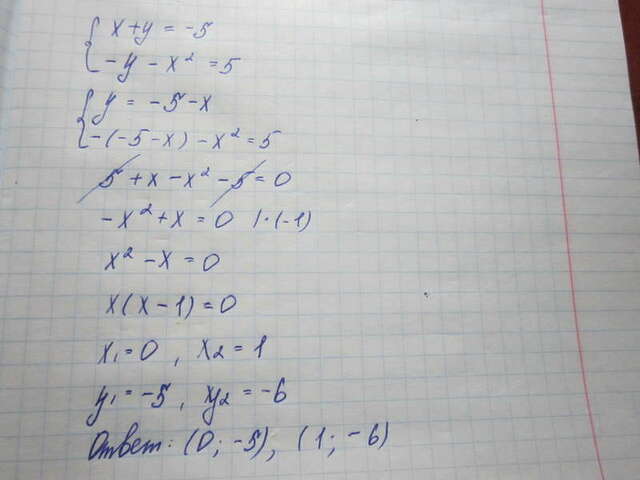 { x + y = -5
-y - x² = 5
{ y = -5 - x
-(-5 - x) - x² = 5
5 + x - x² - 5 = 0
-x² + x = 0 | · (-1)
x² - x = 0
x(x - 1) = 0
x₁ = 0 , x₂ = 1
y₁ = -5 , y₂ = -6
Ответ: (0; -5), (1; -6)